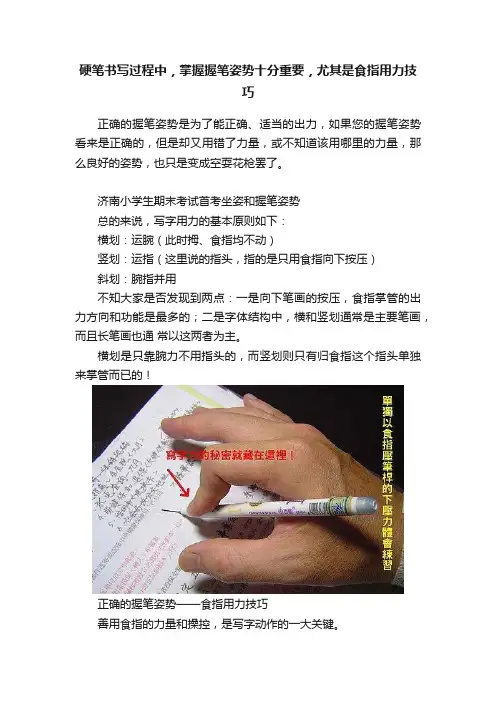 硬笔书写过程中，掌握握笔姿势十分重要，尤其是食指用力技
巧
正确的握笔姿势是为了能正确、适当的出力，如果您的握笔姿势
看来是正确的，但是却又用错了力量，或不知道该用哪里的力量，那
么良好的姿势，也只是变成空耍花枪罢了。
济南小学生期末考试首考坐姿和握笔姿势
总的来说，写字用力的基本原则如下：
横划：运腕（此时拇、食指均不动）
竖划：运指（这里说的指头，指的是只用食指向下按压）
斜划：腕指并用
不知大家是否发现到两点：一是向下笔画的按压，食指掌管的出
力方向和功能是最多的；二是字体结构中，横和竖划通常是主要笔画，
而且长笔画也通 常以这两者为主。
横划是只靠腕力不用指头的，而竖划则只有归食指这个指头单独
来掌管而已的！
單獨以食指壓筆桿的下壓力體會練習
的秘密就藏在這裡！
正确的握笔姿势——食指用力技巧
善用食指的力量和操控，是写字动作的一大关键。